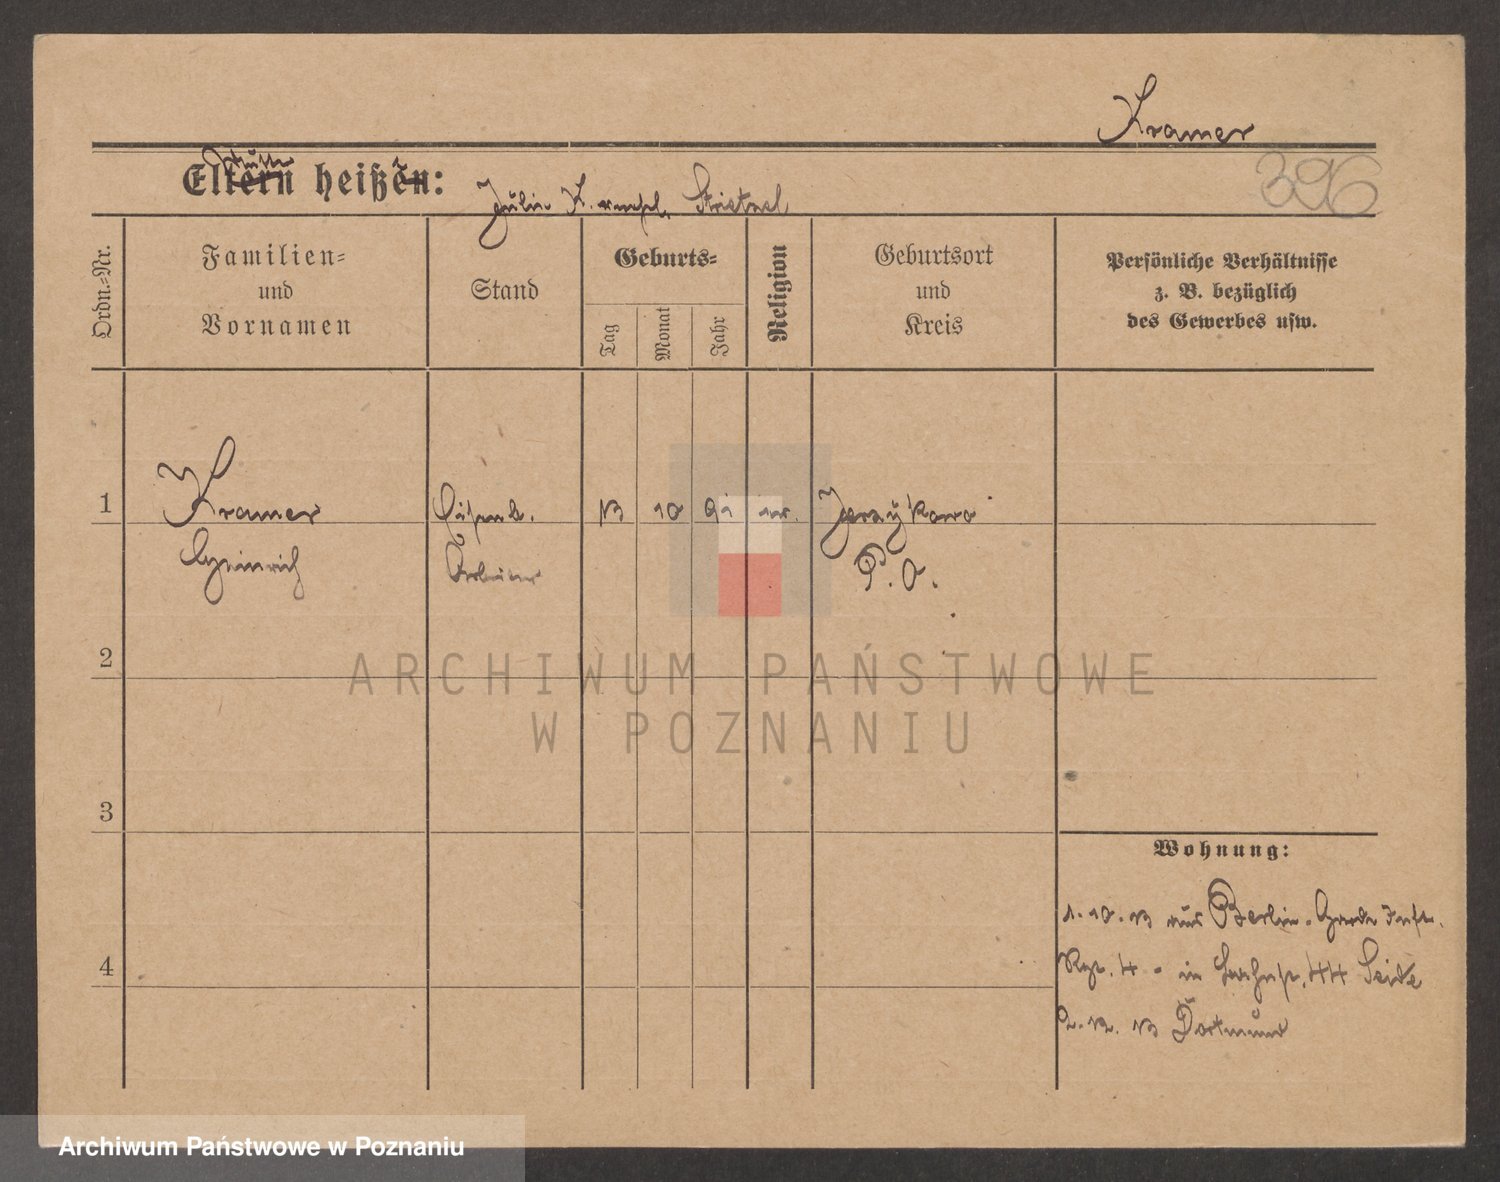 Kramer
Eltern heißen: Mutter
396
Julie K. verehel. Strietzel
Ordn.=Nr.
Familien=
und
Vornamen
Stand
Geburts=
Tag
Monat
Jahr
Religion
Geburtsort
und
Kreis
Persönliche Verhältnisse
z. B. bezüglich
des Gewerbes usw.
1
Kramer
Heinrich
Arbeiter
13 10 91
Jerzykowo
P. O.
2
3
4
Wohnung:
1. 10. 13 aus Berlin. Garde Inft.
Rgt. 4 - in 44 Seide
2. 12. 13 Dortmund
ARCHIWUM PAŃSTWOWE
W POZNANIU
Archiwum Państwowe w Poznaniu